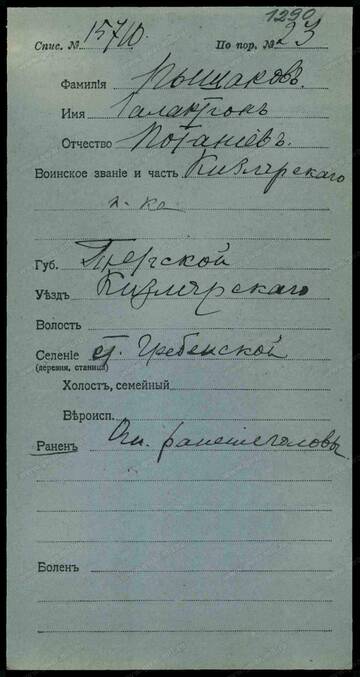 1290
Спис. № 15710. По пор. № 23
Фамилія Рыщаковъ.
Имя Галактіонъ
Отчество Потапіевъ.
Воинское званіе и часть Кизлярскаго
п. ка
Губ. Терской
Уѣздъ Кизлярскаго
Волость
Селеніе ст. Гребенской
(деревня, станица)
Холостъ, семейный
Вѣроисп.
Раненъ Огн. раненіе головы
Боленъ